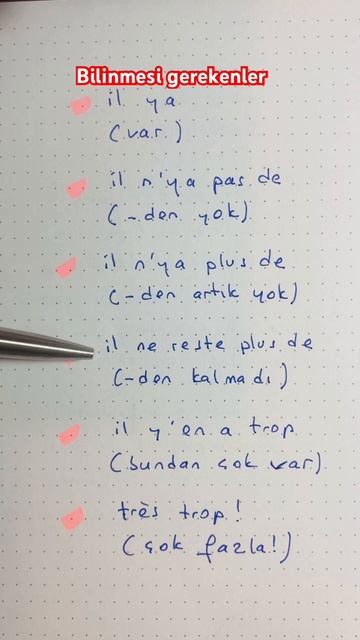 Bilinmesi gerekenler
il ya
(var.)
il n'ya pas de
(-den yok).
il n'ya plus de
(-den artık yok)
il ne reste plus de
(-den kalmadı)
il y'en a trop
(bundan çok var).
très trop!
(çok fazla!)